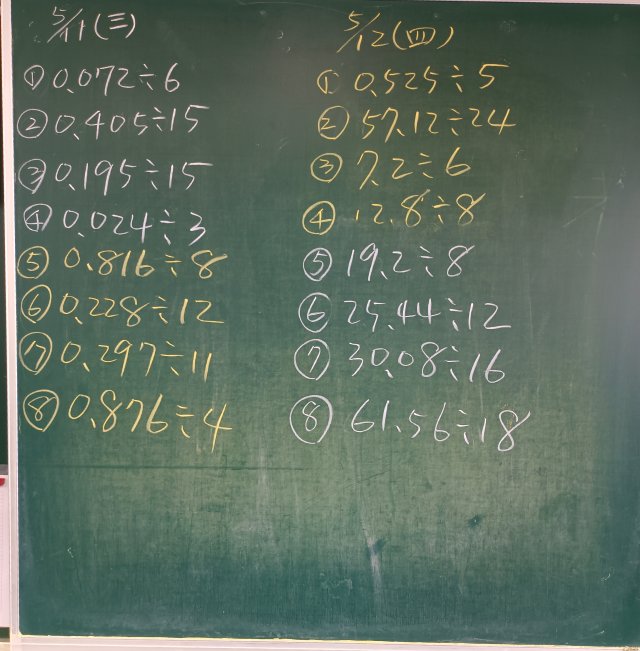 5/11(三)
① 0.072÷6
② 0.405÷15
③ 0.195÷15
④ 0.024÷3
⑤ 0.816÷8
⑥ 0.228÷12
⑦ 0.297÷11
⑧ 0.876÷4
5/12(四)
① 0.525÷5
② 57.12÷24
③ 7.2÷6
④ 12.8÷8
⑤ 19.2÷8
⑥ 25.44÷12
⑦ 30.08÷16
⑧ 61.56÷18